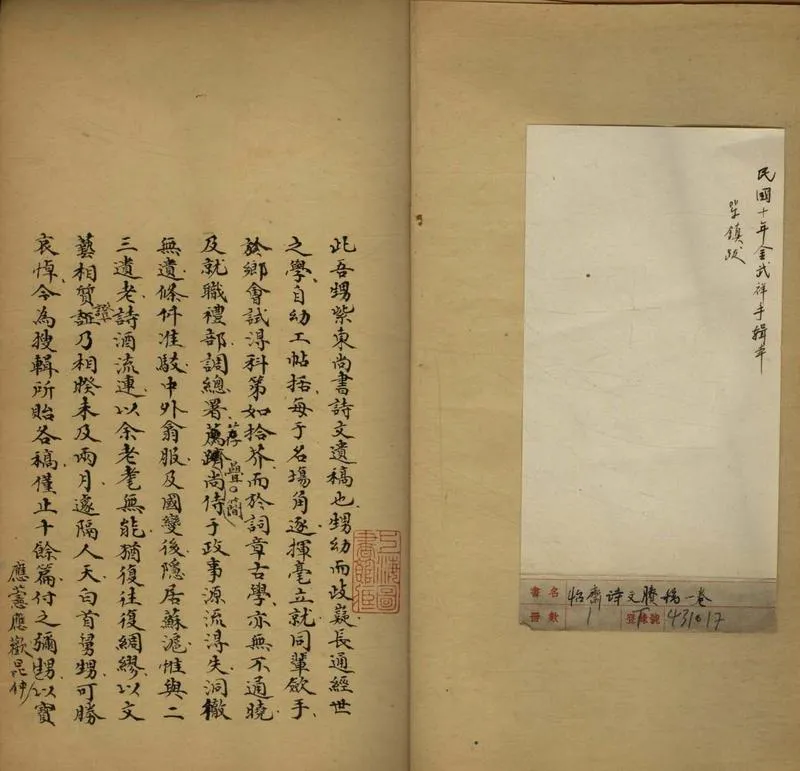 民國十年金武祥手輯本
單鎮跋
書名 怡齋诗文賸稿一卷
冊數 1 登錄號 431017
此吾甥紫東尚書詩文遺稿也甥幼而歧嶷長通經世
之學自幼工帖括每于名場角逐揮毫立就同輩斂手
於鄉會試得科第如拾芥而於詞章古學亦無不通曉
及就職禮部調總署薦躋尚侍于政事源流得失洞徹
荐疊簡
無遺條件准駁中外翕服及國變後隱居蘇滬惟與二
三遺老詩酒流連以余老耄無能猶復往復綢繆以文
藝相質証乃相暌未及兩月遽隔人天白首舅甥可勝
證
哀悼今為搜輯所貽各稿僅止十餘篇付之彌甥以寶
應蕙應歡昆仲
上海圖書館藏